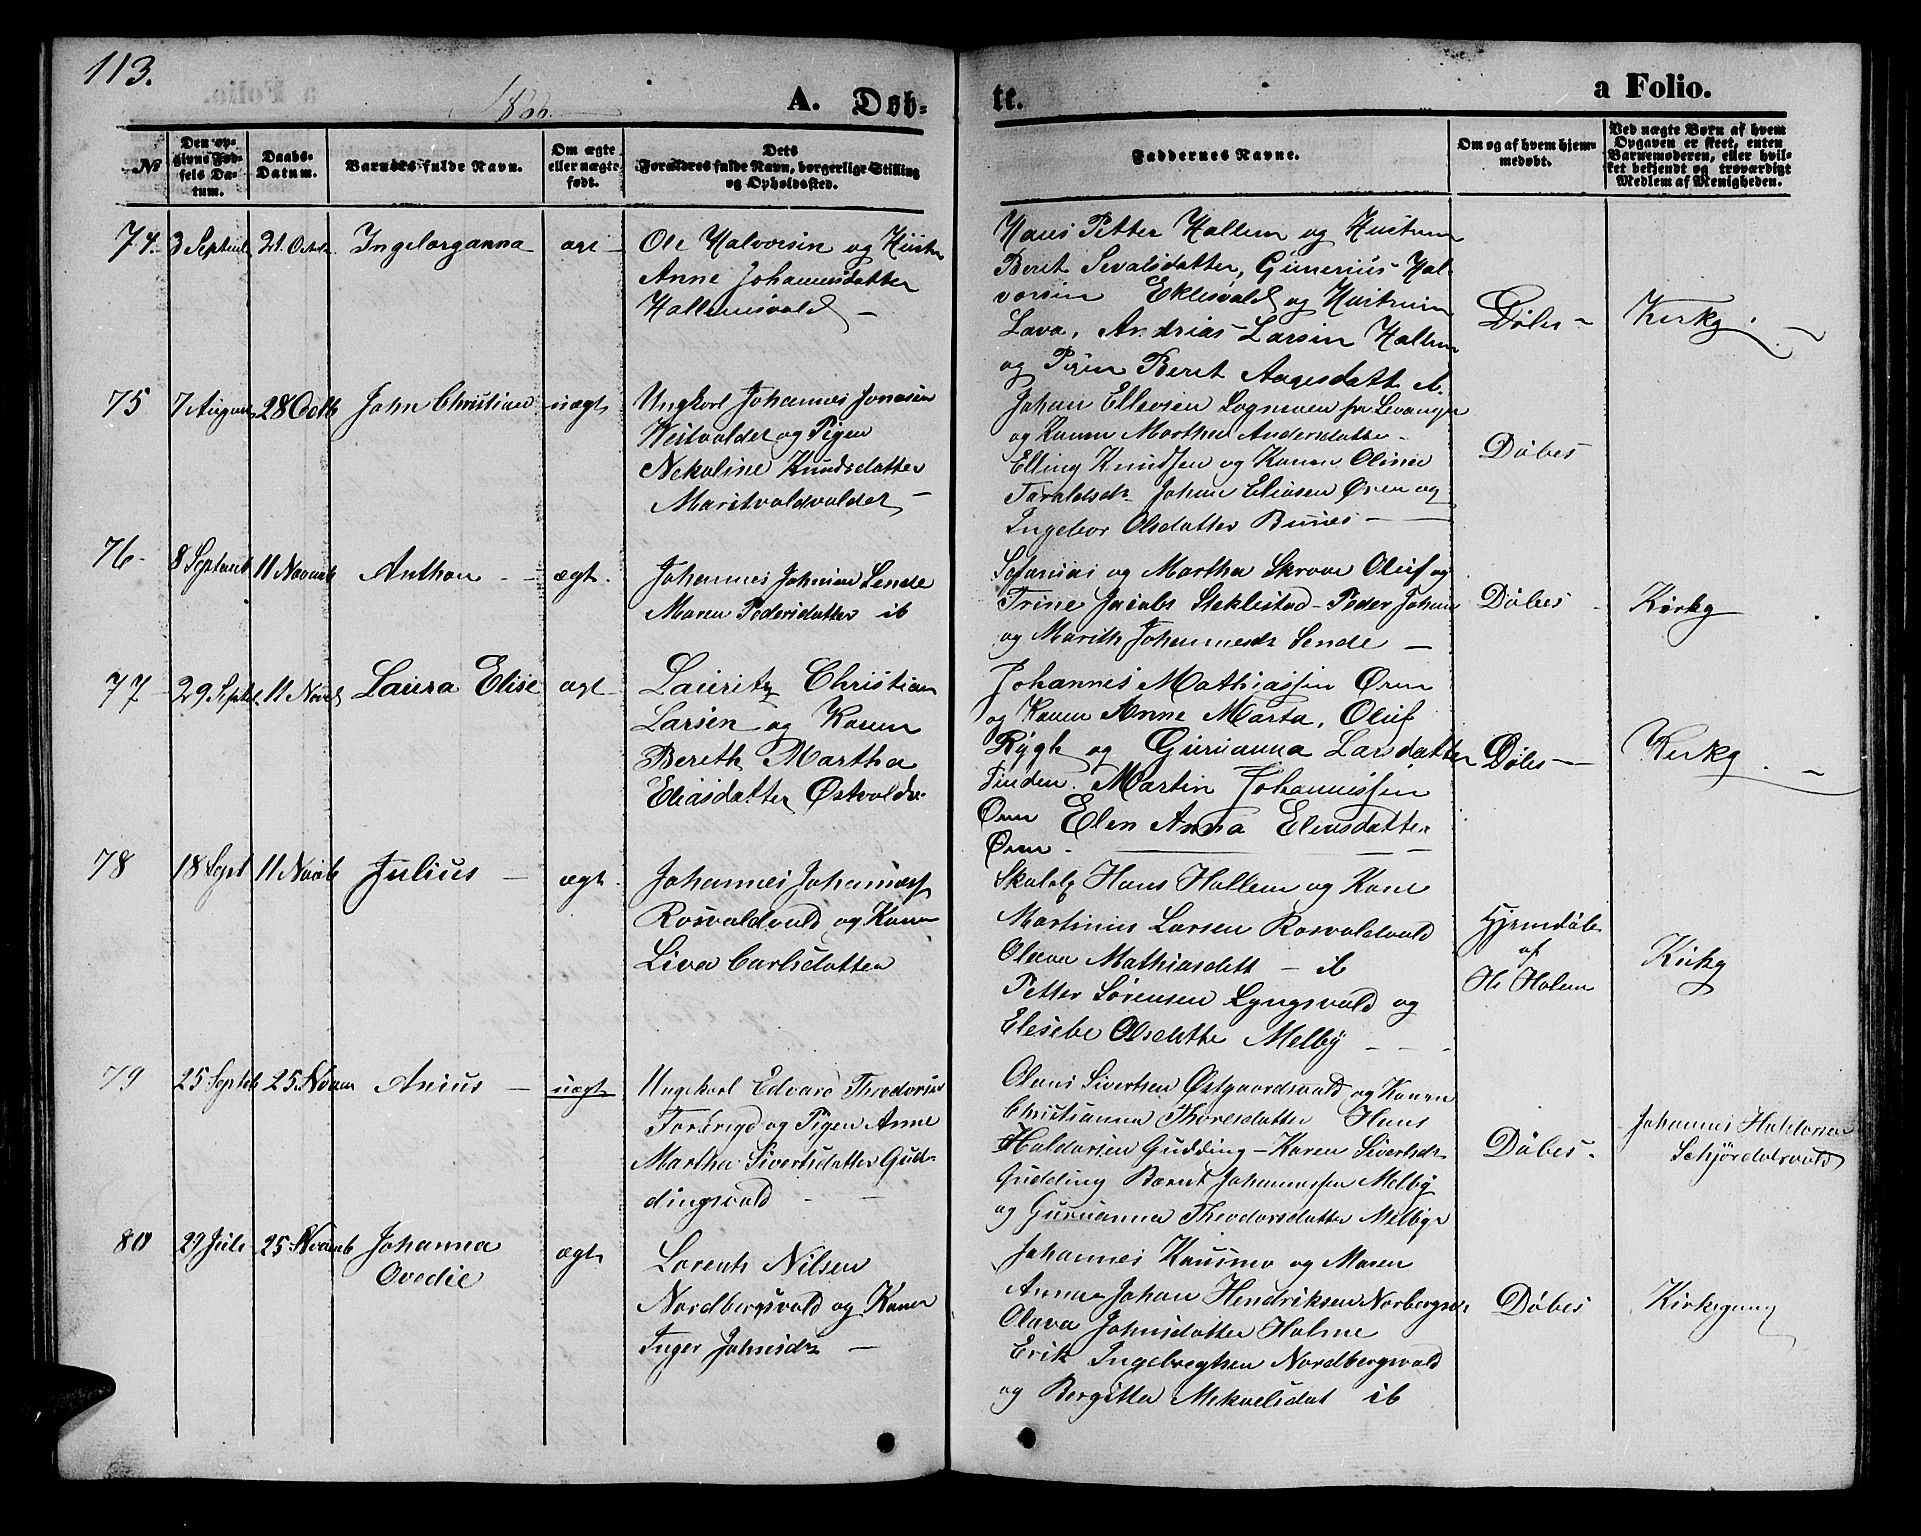 113.
1866.
A. Døb-
te.
a Folio.
№
Den op-
givne Fød-
sels Da-
tum.
Daabs-
Datum.
Barnets fulde Navn.
Om ægte
eller uægte
født.
Dets
Forældres fulde Navn, borgerlige Stilling
og Opholdssted.
Faddernes Navne.
Om og af hvem hjem-
medøbt.
Ved uægte Børn af hvem
Opgaven er skeet, enten
Barnemoderen, eller hvil-
ket bekjendt og troværdigt
Medlem af Menigheden.
74. 3 Septemb 21. Octob Ingeborganna ægt
Ole Halvorsen og Hustr
Anne Johannesdatter
Hallemsvald —
Hans Petter Hallem og Hustrue
Beret Sevalsdatter, Gunerius Hal-
vorsen Eklesvald og Hustruen
Lava, Andrias Larsen Hallem
og Pigen Beret Aagesdatt ib.
Døbes —
Kirkg. —
75 7 August 28 Octb John Christian uægt
Ungkarl Johannes Jonasen
Westvaldet og Pigen
Nekoline Knudsdatter
Maritvaldvaldet —
Johan Ellevsen Sogmoen fra Levanger
og Konen Marthe Andersdatte
Elling Knudsen og Konen Olina
Taraldsdr Johan Eliasen Øren og
Ingebor Olsdatter Bunes —
Døbes
76 8 Septemb 11 Novemb Anthon — ægt.
Johannes Johnsen Sende
Maren Pedersdatter ib
Sefanias og Martha Skrove Oluf og
Trine Jacobs Steklestad — Peder Johan
og Marith Johannesdr Sende —
Døbes
Kirkg
77 29 Septbr. 11 Novb Laura Elise ægt
Lauritz Christian
Larsen og Konen
Bereth Martha
Eliasdatter Østvold
Johannes Mathiassen Øren
og Konen Anne Marta, Oluf
Rygh og Gurianna Larsdatter
Tinden. Martin Johannessen
Øren Elen Anna Eleusdatter
Øren.
Døbes —
Kirkg. —
78 18 Sept 11 Novb Julius — ægt.
Johannes Johannes
Rosvoldvald og Kone
Liva Carlsdatter
Skolelr Hans Hallem og Kone
Martinus Larsen Rosvoldvald
Olava Mathiasdatt — ib
Petter Sørensen Lyngsvald og
Elesebe Olsdatte Melby — —
Hjemdøbt
af
Hs Halem
Kirkg
79 25 Septeb 25 Novem Anius — uægt
Ungkarl Edvard Theodorius
Forbregd og Pigen Anne
Martha Sivertsdatter Gud-
dingsvald —
Olaus Sivertsen Østgaardsvald og Konen
Christianna Thoresdatter Hans
Haldorsen Gudding — Karen Sivertsdr
Gudding Bernt Johannessen Melby
og Gurianna Theodorsdatter Melbye
Døbes —
Johannes Haldorsen
Schjørdalsvald
80 29 Juli 25 Novemb Johanna
Ovedie
ægt
Lorents Nilsen
Nordbergsvald og Kone
Inger Johnsdr —
Johannes Kausmo og Maren
Anna. Johan Hendriksen Norbergsv
Olava Johnsdatter Holme
Erik Ingebregtsen Nordbergsvald
og Bergitta Mekaelsdat ib
Døbes
Kirkegang